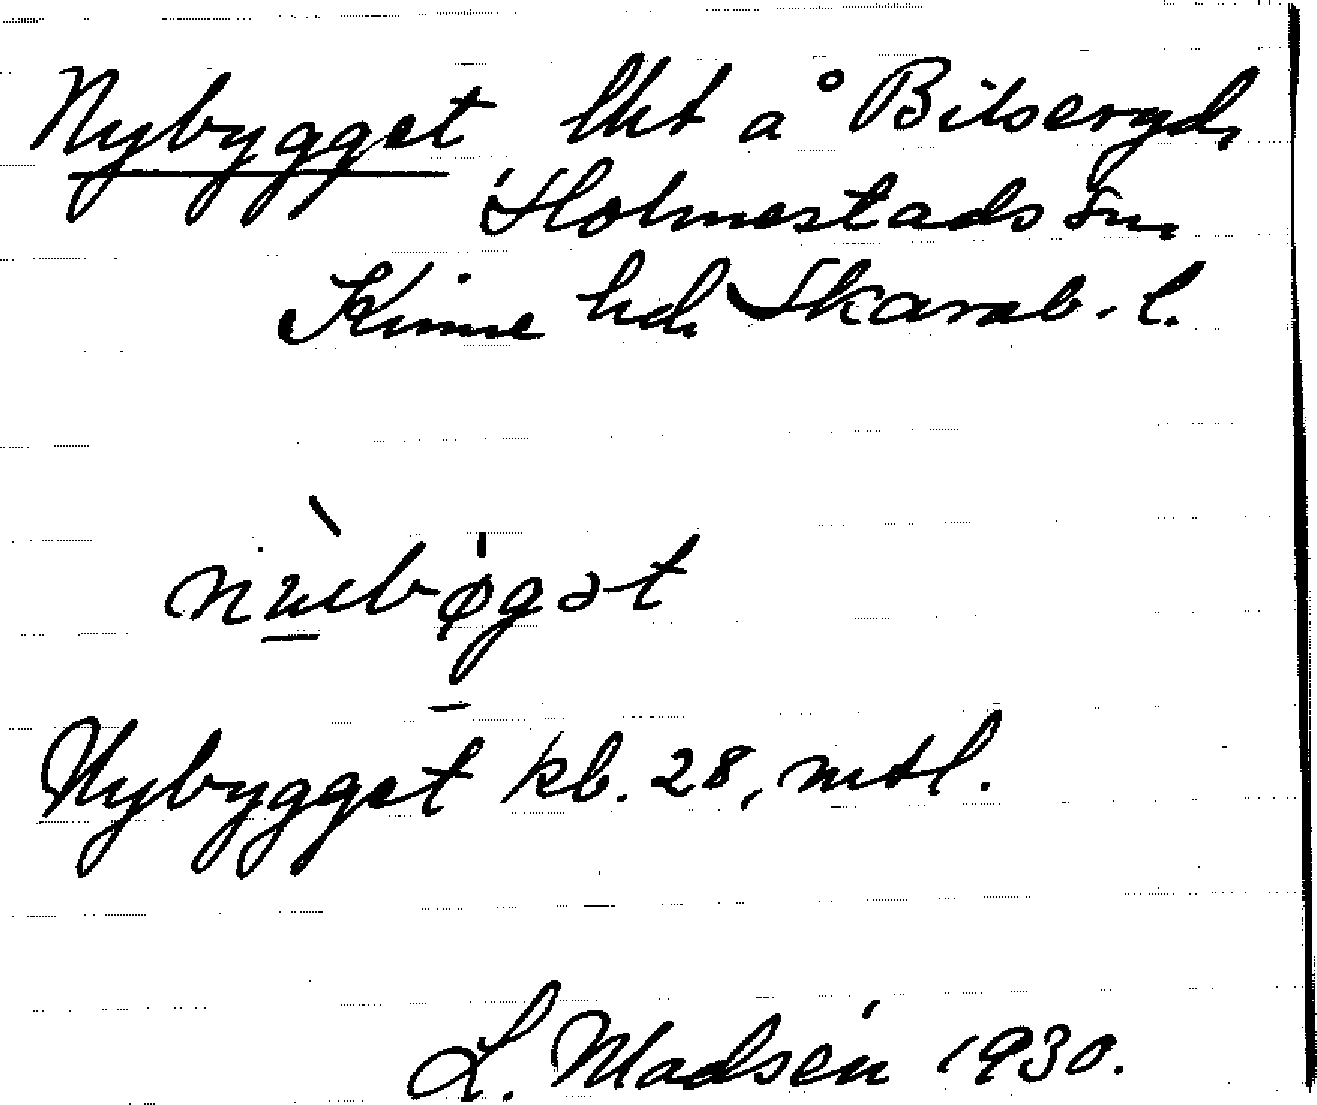 Nybygget lht å Bitseryd,
Holmestads sn,
Kinne hd, Skarab. l.
nẁbø̍gət
Nybygget kb. 28, mtl.
L. Madsén 1930.